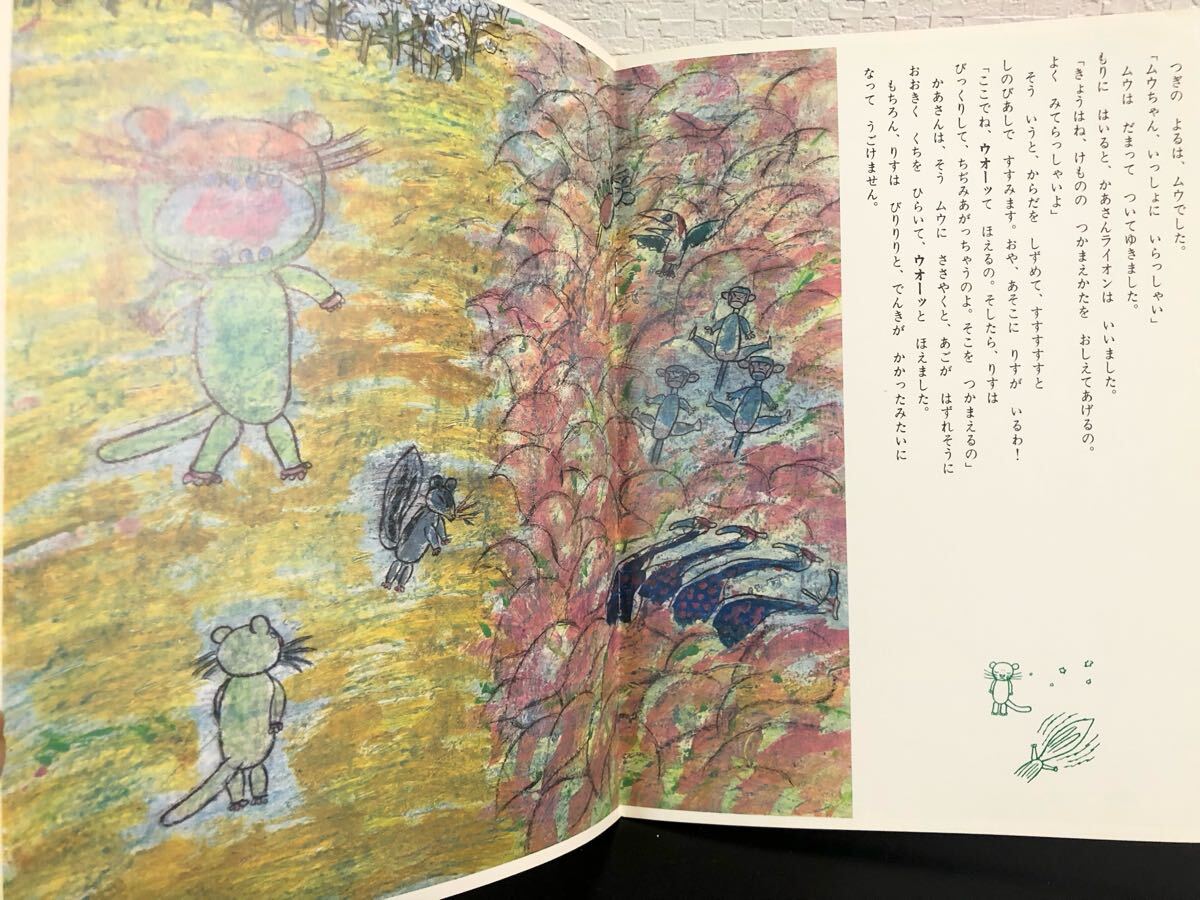 つぎの よるは、ムウでした。
「ムウちゃん、いっしょに いらっしゃい」
ムウは だまって ついてゆきました。
もりに はいると、かあさんライオンは いいました。
「きょうはね、けものの つかまえかたを おしえてあげるの。
よく みてらっしゃいよ」
そう いうと、からだを しずめて、すすすすすと
しのびあしで すすみます。おや、あそこに りすが いるわ！
「ここでね、ウオーッて ほえるの。そしたら、りすは
びっくりして、ちぢみあがっちゃうのよ。そこを つかまえるの」
かあさんは、そう ムウに ささやくと、あごが はずれそうに
おおきく くちを ひらいて、ウオーッと ほえました。
もちろん、りすは びりりりと、でんきが かかったみたいに
なって うごけません。